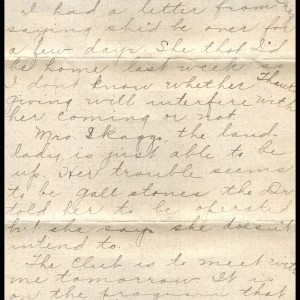 I had a letter from
saying she'd be over for
a few days. She that I'd
be home last week &
I dont know whether Thanks
giving will interfere with
her coming or not.
Mrs. Skaggs, the land-
lady is just able to be
up. Her trouble seems
to be gall stones. the Dr
told her to be operated
but she says she doesn't
intend to.
The Club is to meet with
me tomorrow. It is
on the program that